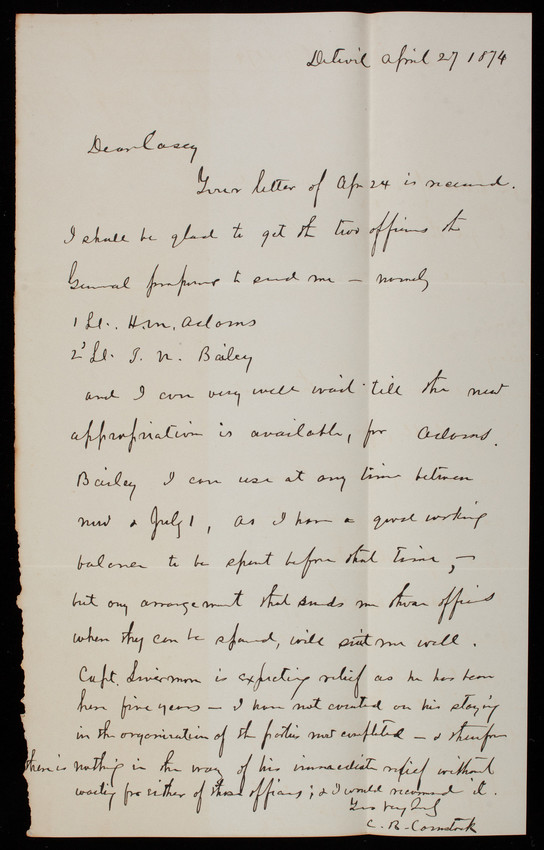 Detroit April 27 1874
Dear Casey
Your letter of Apr 24 is received.
I shall be glad to get the two officers the
General proposes to send me — namely
1 Lt. H. M. Adams
2d Lt. T. N. Bailey
and I can very well wait till the new
appropriation is available, for Adams.
Bailey I can use at any time between
now & July 1, as I have a good working
balance to be spent before that time, —
but any arrangement that sends me those officers
when they can be spared, will suit me well.
Capt. Livermore is expecting relief as he has been
here five years — I have not counted on his staying
in the organization of the parties now completed — & therefore
there is nothing in the way of his immediate relief without
waiting for either of those officers; & I would recommend it.
Yrs very truly
C. B. Comstock